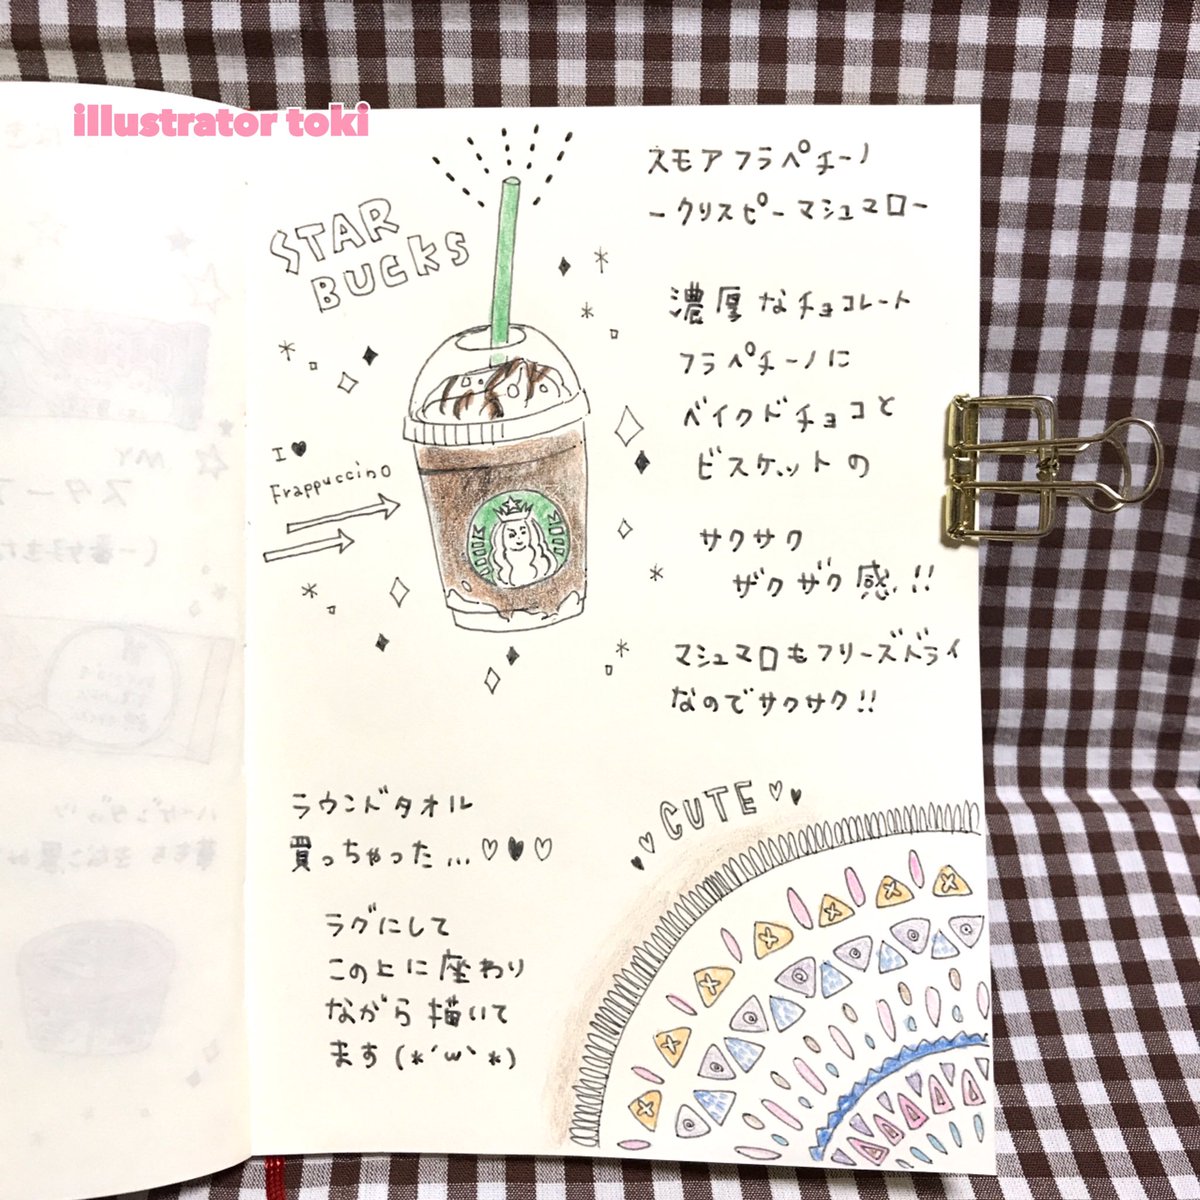 illustrator toki
STAR
BUCKS
I♥
Frappuccino
スモアフラペチーノ
ークリスピーマシュマロー
濃厚なチョコレート
フラペチーノに
ベイクドチョコと
ビスケットの
サクサク
ザクザク感!!
マシュマロもフリーズドライ
なのでサクサク!!
ラウンドタオル
買っちゃった...♡♥♡
ラグにして
この上に座わり
ながら描いて
ます(*´ω`*)
CUTE♡♥